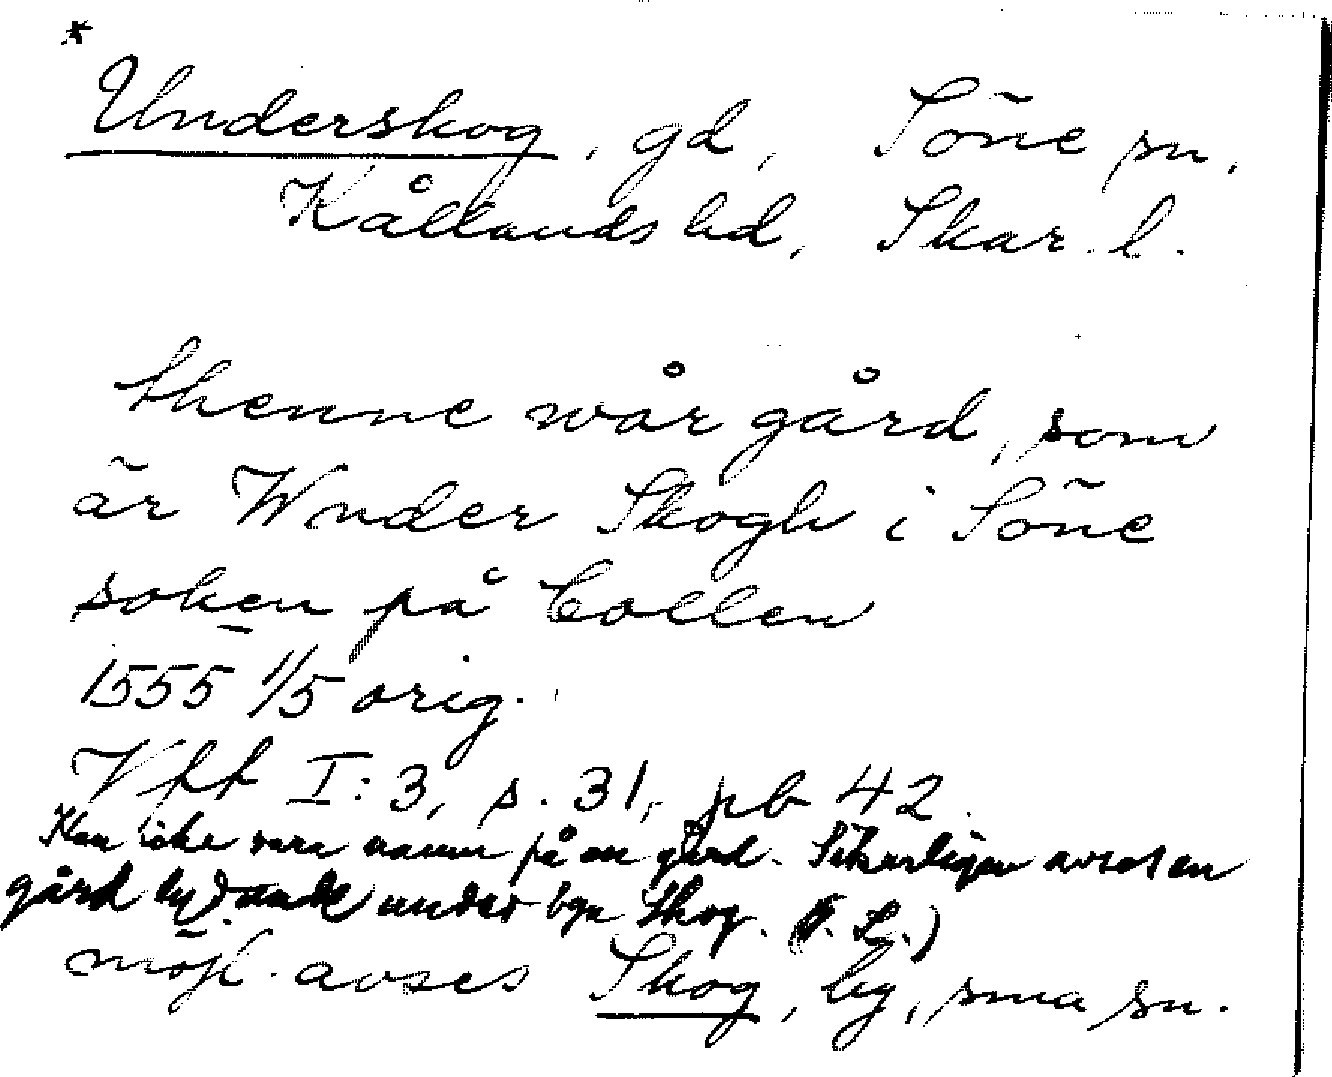 *
Underskog, gd, Söne sn,
Kållands hd, Skar. l.
thenne wår gård, som
är Wnder Skogh i Söne
soken på Collen
1555 1/5 orig.
Vff I:3, s. 31, pb 42.
Kan icke vara namn på en gård. Säkerligen avses en
gård lydande under byn Skog. (I. L.)
möjl. avses Skog, by, sma sn.